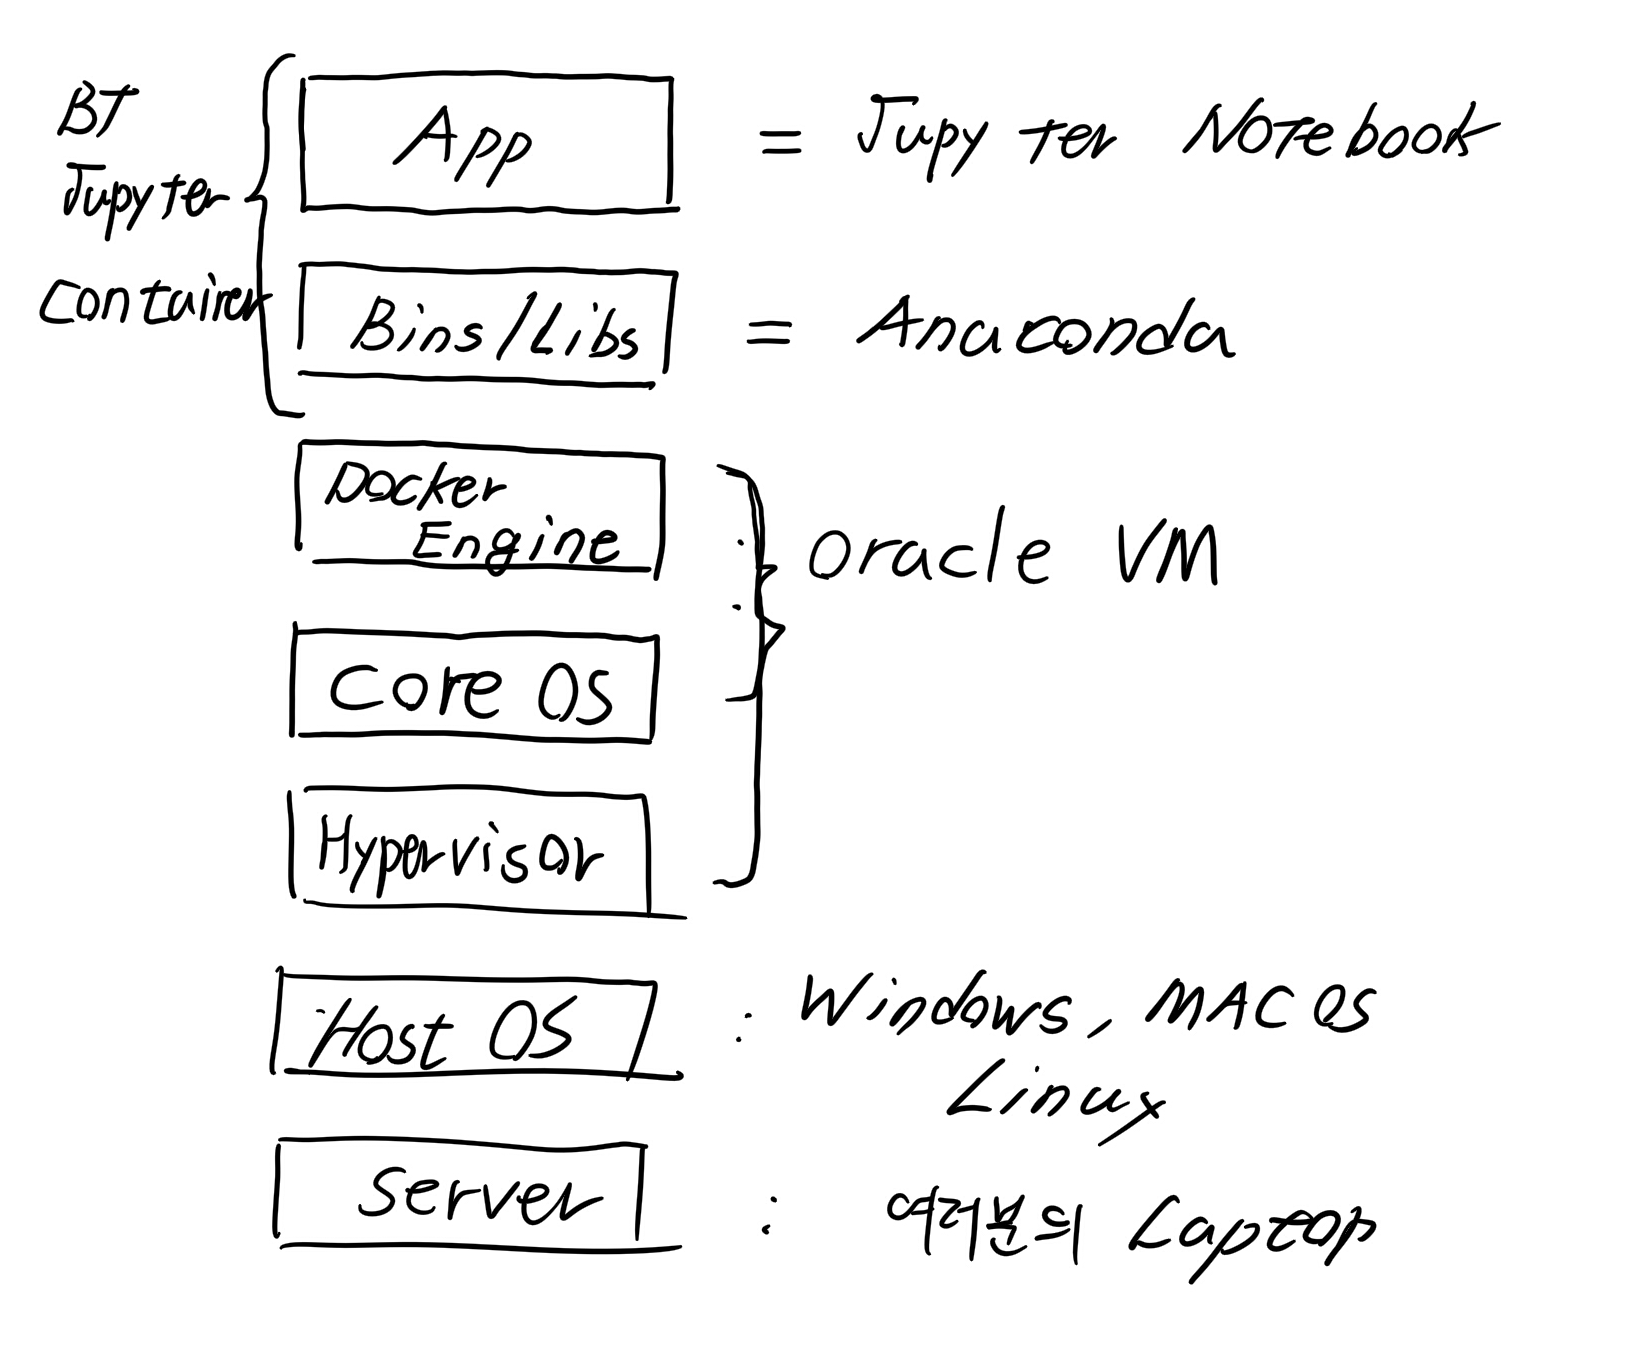 BT
Jupyter
Container
App = Jupyter Notebook
Bins/Libs = Anaconda
Docker
Engine
Oracle VM
Core OS
Hypervisor
Host OS : Windows, MAC OS
Linux
Server : 여러분의 Laptop